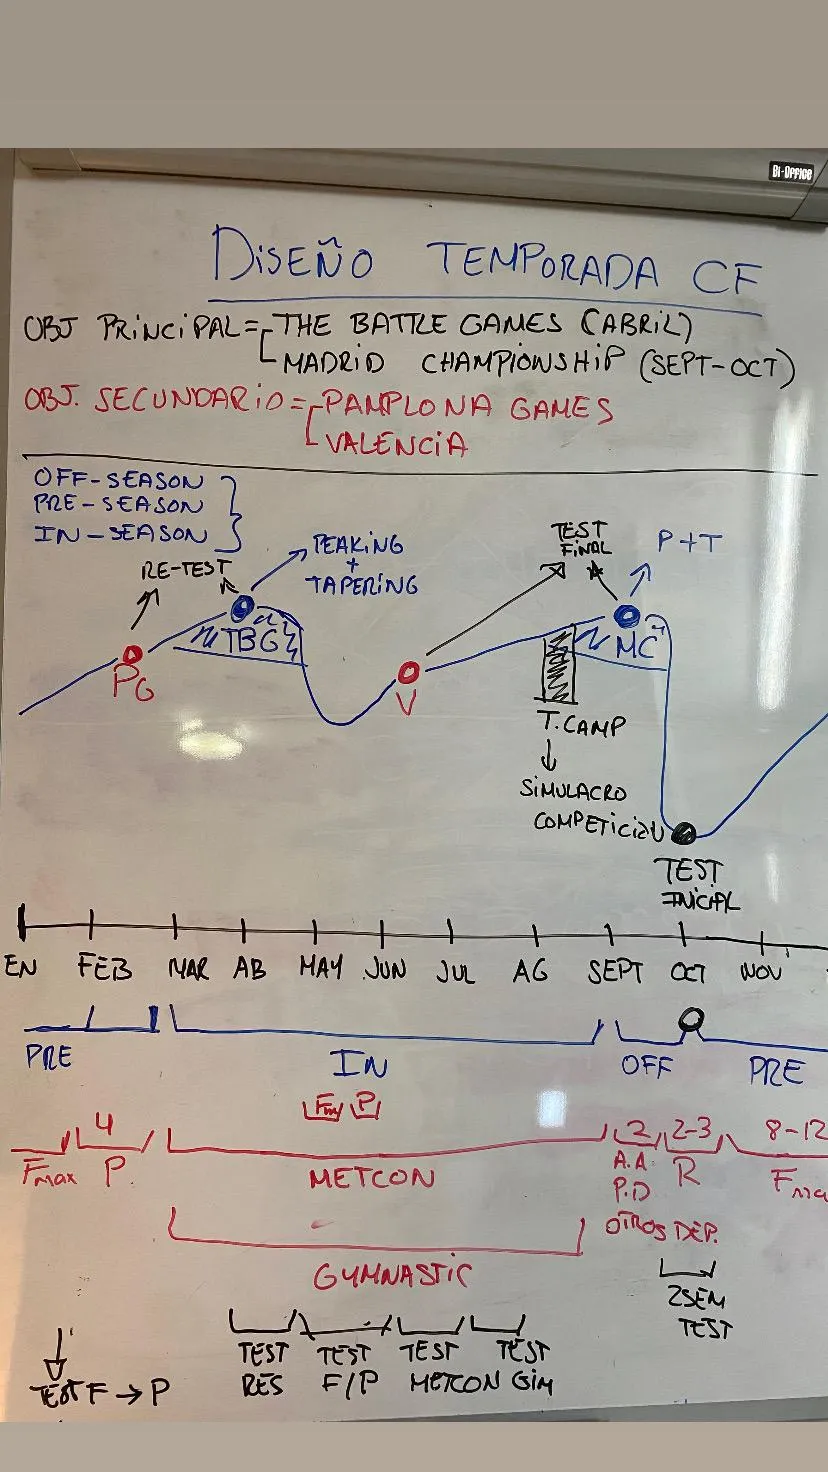 Bi-OFFICE
DISEÑO TEMPORADA CF
OBJ PRINCIPAL = THE BATTLE GAMES (ABRIL)
MADRID CHAMPIONSHIP (SEPT-OCT)
OBJ. SECUNDARIO = PAMPLONA GAMES
VALENCIA
OFF-SEASON
PRE-SEASON
IN-SEASON
PEAKING
+
TAPERING
RE-TEST
TEST
FINAL
P+T
TBG
MC
PG
V
T.CAMP
SIMULACRO
COMPETICIÓN
TEST
INICIAL
EN FEB MAR AB MAY JUN JUL AG SEPT OCT NOV
PRE IN OFF PRE
P
4 2 2-3 8-12
Fmax P. METCON A.A R
P.D
OTROS DEP.
GYMNASTIC
2SEM
TEST
TEST TEST TEST TEST
RES F/P METCON GIM
TEST F → P